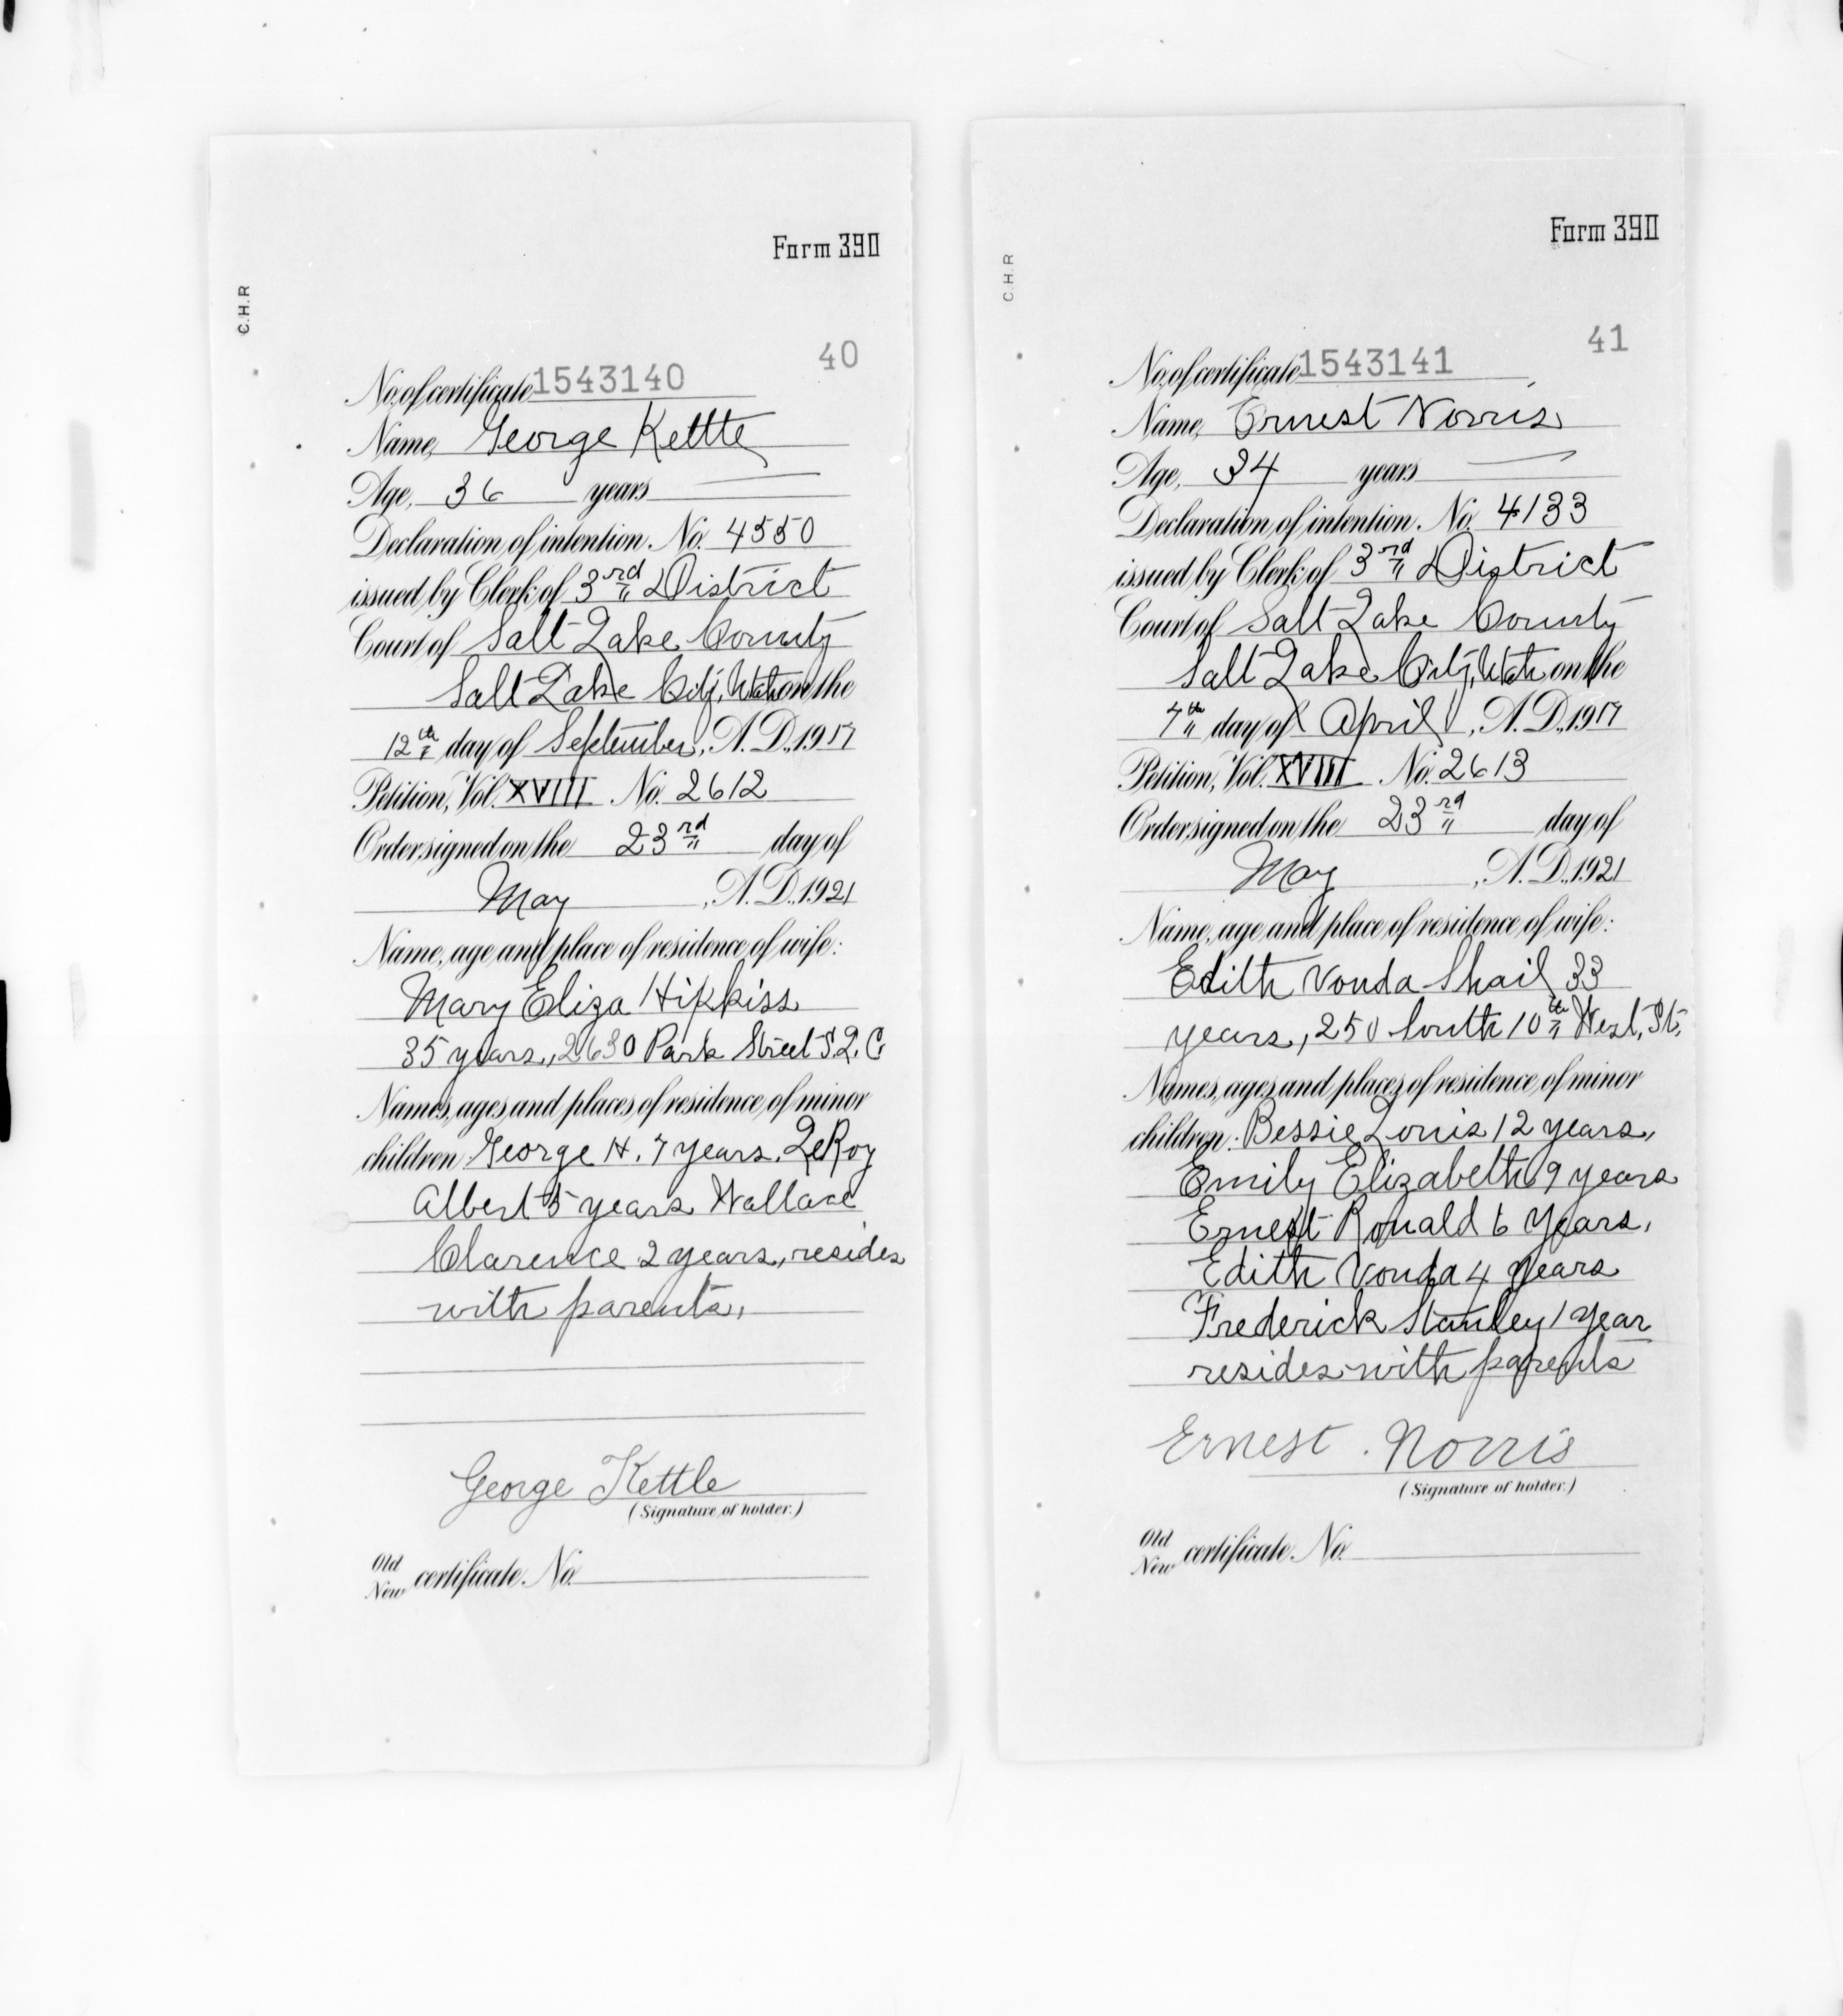 Form 390
C.H.R
40
No. of certificate 1543140
Name, George Kettle
Age, 36 years
Declaration of intention No. 4550
issued by Clerk of 3rd District
Court of Salt Lake County
Salt Lake City, Utah on the
12th day of September, A.D., 1917
Petition, Vol. XVIII No. 2612
Order signed on the 23rd day of
May, A.D., 1921
Name, age and place of residence of wife:
Mary Eliza Hipkiss
35 years, 2630 Park Street S.L.C.
Names, ages and places of residence of minor
children: George H. 7 years, LeRoy
Albert 5 years Wallace
Clarence 2 years, resides
with parents,
George Kettle
(Signature of holder.)
Old
New certificate No.
Form 390
C.H.R
41
No. of certificate 1543141
Name, Ernest Norris
Age, 34 years
Declaration of intention No. 4133
issued by Clerk of 3rd District
Court of Salt Lake County
Salt Lake City, Utah on the
7th day of April, A.D., 1917
Petition, Vol. XVIII No. 2613
Order signed on the 23rd day of
May, A.D., 1921
Name, age and place of residence of wife:
Edith Vonda Shail 33
years, 250 South 10th West, St.
Names, ages and places of residence of minor
children: Bessie Louis 12 years,
Emily Elizabeth 9 years
Ernest Ronald 6 years,
Edith Vonda 4 years
Frederick Stanley 1 year
resides with parents
Ernest Norris
(Signature of holder.)
Old
New certificate No.